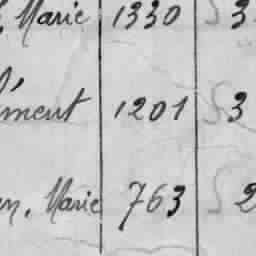 Marie 1330 S 3
ment 1201 S 3
n, Marie 763 S 2